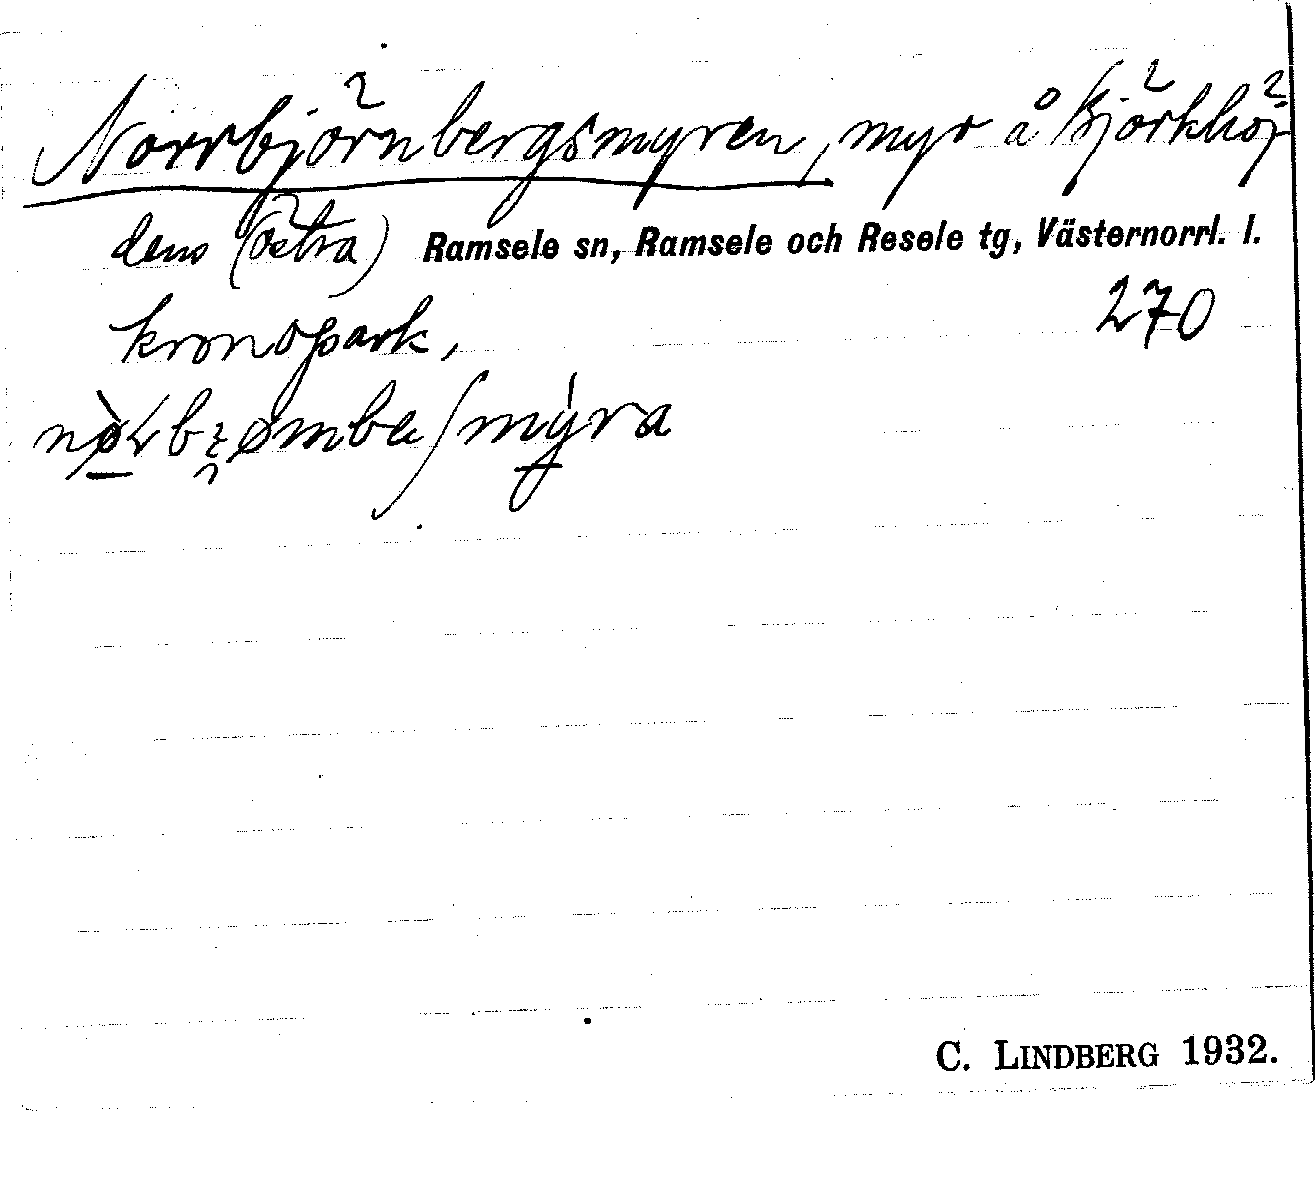 Norrbjörnbergsmyren, myr å Björkhöj-
dens (Östra) Ramsele sn, Ramsele och Resele tg, Västernorrl. l.
kronopark, 270
C. LINDBERG 1932.